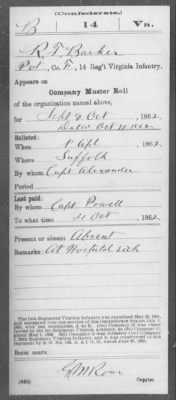 (Confederate.)
B 14 Va.
R. T. Barker
Pvt, Co. F, 14 Reg't Virginia Infantry.
Appears on
Company Muster Roll
of the organization named above,
for Sept & Oct, 1862.
Dated Oct 1862
Enlisted:
When 1 Apl, 1862
Where Suffolk
By whom Capt Alexander
Period
Last paid:
By whom Capt Powell
To what time 31 Oct, 1862.
Present or absent Absent
Remarks: At Hospital sick
Book mark:
Copyist.